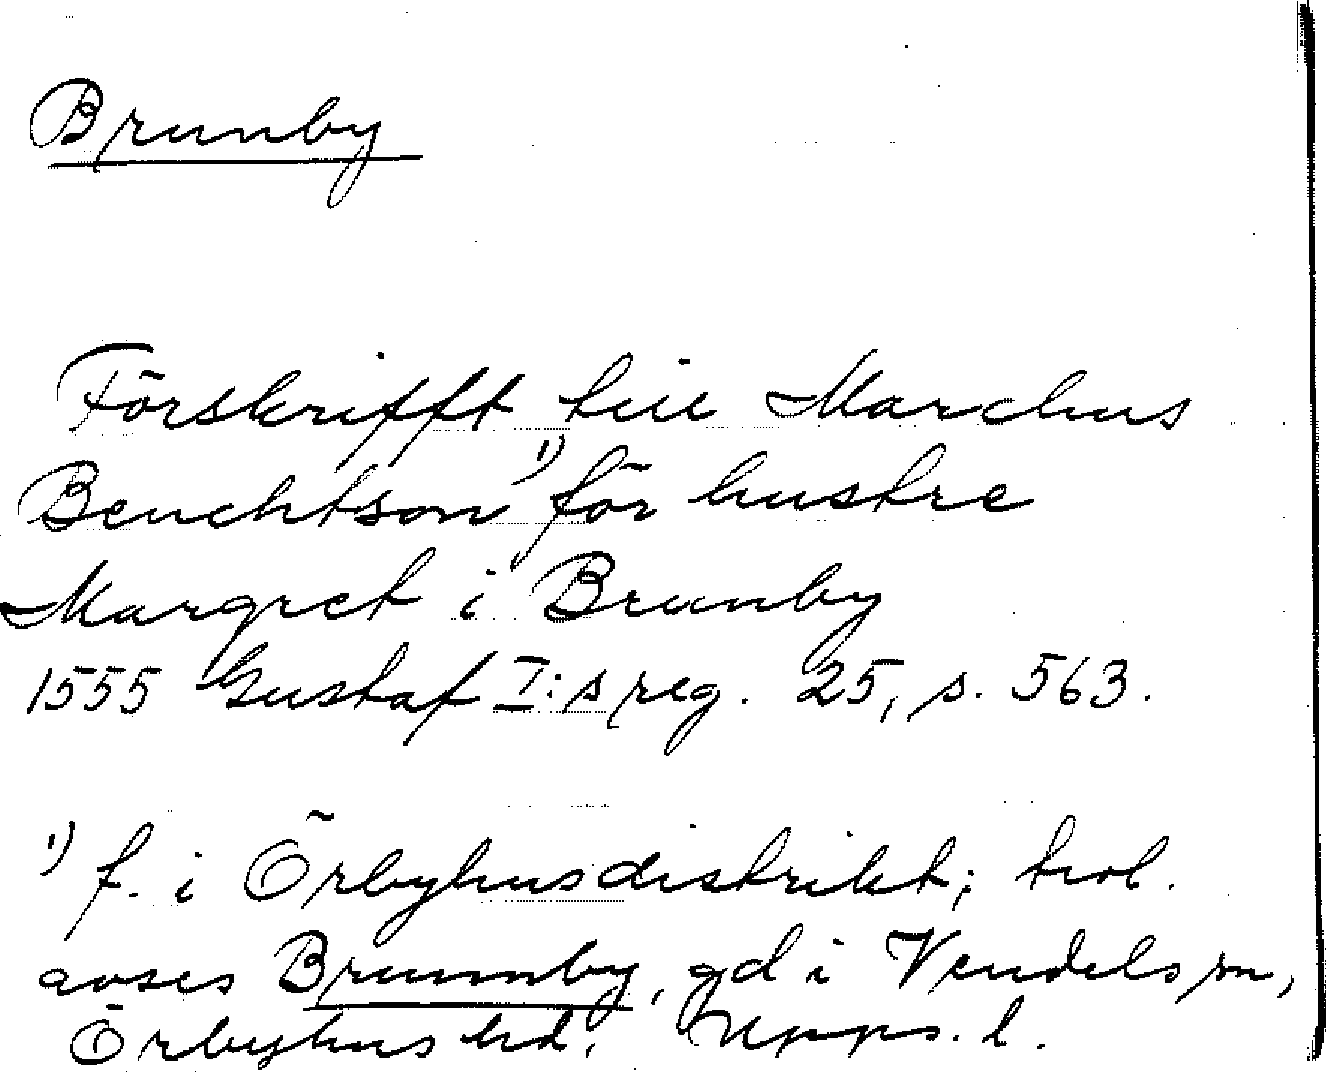 Brunby
Förskrifft till Marchus
Benchtson¹⁾ för hustre
Margret i Brunby
1555 Gustaf I:s reg. 25, s. 563.
¹⁾ f. i Örbyhusdistrikt; trol.
avses Brunnby, gd i Vendels sn,
Örbyhus hd, Upps. l.